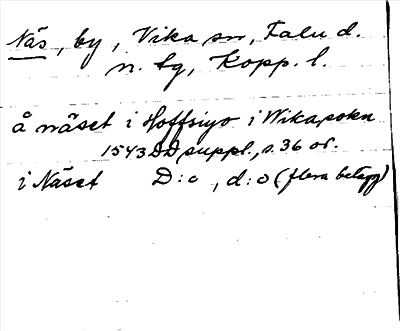 Näs, by, Vika sn, Falu d.
n. tg, Kopp. l.
å näset i Hoffsiyo i Wikasokn
1543 DD suppl., s. 36 or.
i Näset D:o, d:o (flera belägg)